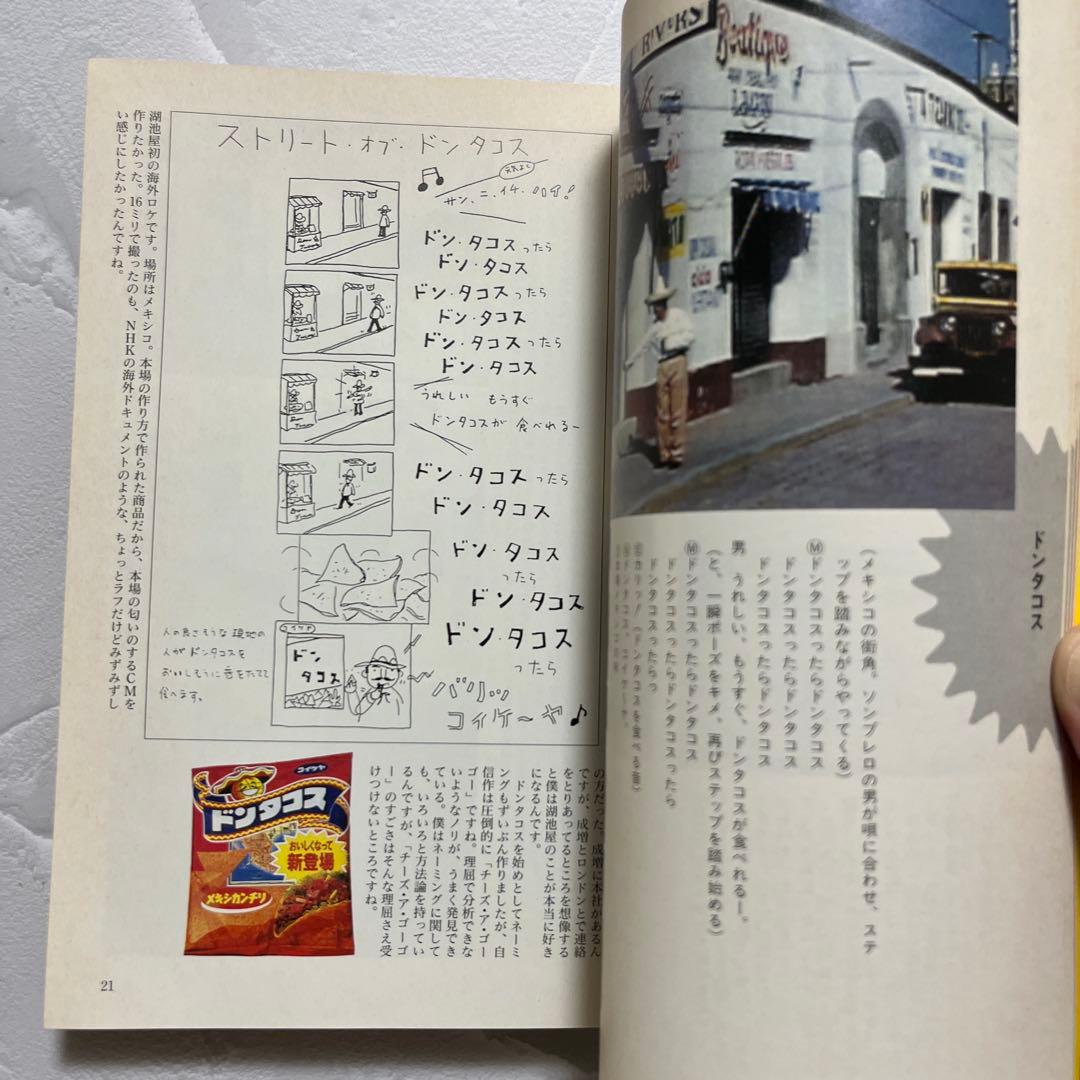 ドンタコス
R'V◆RS
Boutique
(メキシコの街角。ソンブレロの男が唄に合わせ、ステ
ップを踏みながらやってくる)
Ⓜドンタコスったらドンタコス
ドンタコスったらドンタコス
ドンタコスったらドンタコス
男 うれしい、もうすぐ、ドンタコスが食べれるー。
(と、一瞬ポーズをキメ、再びステップを踏み始める)
Ⓜドンタコスったらドンタコス
ドンタコスったらドンタコスったら
ドンタコスったらっ
(ドンタコスを食べる音)
ドンタコス、コイケヤ。
ストリート・オブ・ドンタコス
元気よく
サン、ニ、イチ、ハイ!
ドン・タコスったら
ドン・タコス
ドン・タコスったら
ドン・タコス
ドン・タコスったら
ドン・タコス
うれしい もうすぐ
ドンタコスが 食べれるー
ドン・タコスったら
ドン・タコス
ドン・タコス
ったら
ドン・タコス
ドン・タコス
ったら
バリッ
コイケ〜ヤ♪
コイケヤ
ドン
タコス
人の良さそうな現地の
人がドンタコスを
おいしそうに音をたてて
食べます。
湖池屋初の海外ロケです。場所はメキシコ。本場の作り方で作られた商品だから、本場の匂いのするCMを
作りたかった。16ミリで撮ったのも、NHKの海外ドキュメントのような、ちょっとラフだけどみずみずし
い感じにしたかったんですね。
の方だった。成増に本社があるん
ですが、成増とロンドンとで連絡
をとりあってるところを想像する
と僕は湖池屋のことが本当に好き
になるんです。
ドンタコスを始めとしてネーミ
ングもずいぶん作りましたが、自
信作は圧倒的に「チーズ・ア・ゴー
ゴー」ですね。理屈で分析できな
いようなノリが、うまく発見でき
ている。僕はネーミングに関して
も、いろいろと方法論を持ってい
るんですが、「チーズ・ア・ゴーゴ
ー」のすごさはそんな理屈さえ受
けつけないところですね。
コイケヤ
ドンタコス
おいしくなって
新登場
メキシカンチリ
21